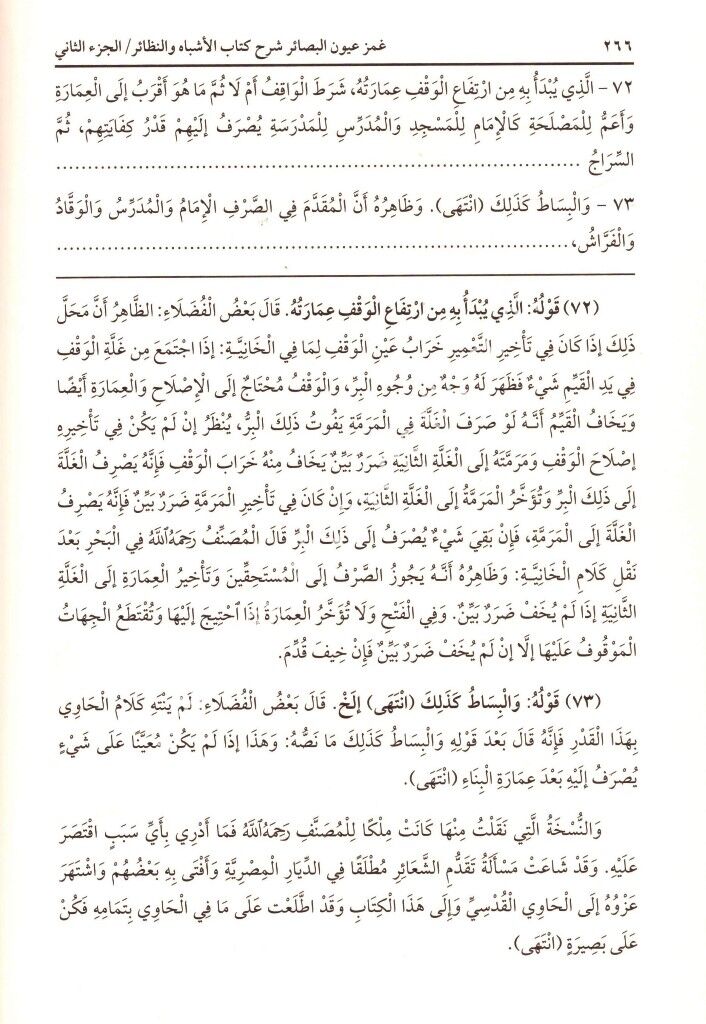 ٢٦٦ غمز عيون البصائر شرح كتاب الأشباه والنظائر/ الجزء الثاني
٧٢ - الَّذِي يُبْدَأُ بِهِ مِن ارْتِفَاعِ الْوَقْفِ عِمَارَتُهُ، شَرَطَ الْوَاقِفُ أَمْ لَا ثُمَّ مَا هُوَ أَقْرَبُ إلَى الْعِمَارَةِ
وَأَعَمُّ لِلْمَصْلَحَةِ كَالْإِمَامِ لِلْمَسْجِدِ وَالْمُدَرِّسِ لِلْمَدْرَسَةِ يُصْرَفُ إلَيْهِمْ قَدْرُ كِفَايَتِهِمْ، ثُمَّ
السِّرَاجُ ................................................................................
٧٣ - وَالْبِسَاطُ كَذَلِكَ (انْتَهَى). وَظَاهِرُهُ أَنَّ الْمُقَدَّمَ فِي الصَّرْفِ الْإِمَامُ وَالْمُدَرِّسُ وَالْوَقَّادُ
وَالْفَرَّاشُ، ................................................................................
(٧٢) قَوْلُهُ: الَّذِي يُبْدَأُ بِهِ مِن ارْتِفَاعِ الْوَقْفِ عِمَارَتُهُ. قَالَ بَعْضُ الْفُضَلَاءِ: الظَّاهِرُ أَنَّ مَحَلَّ
ذَلِكَ إذَا كَانَ فِي تَأْخِيرِ التَّعْمِيرِ خَرَابُ عَيْنِ الْوَقْفِ لِمَا فِي الْخَانِيَّةِ: إذَا اجْتَمَعَ مِن غَلَّةِ الْوَقْفِ
فِي يَدِ الْقَيِّمِ شَيْءٌ فَظَهَرَ لَهُ وَجْهٌ مِن وُجُوهِ الْبِرِّ، وَالْوَقْفُ مُحْتَاجٌ إلَى الْإِصْلَاحِ وَالْعِمَارَةِ أَيْضًا
وَيَخَافُ الْقَيِّمُ أَنَّهُ لَوْ صَرَفَ الْغَلَّةَ فِي الْمَرَمَّةِ يَفُوتُ ذَلِكَ الْبِرُّ، يُنْظَرُ إنْ لَمْ يَكُنْ فِي تَأْخِيرِهِ
إصْلَاحَ الْوَقْفِ وَمَرَمَّتَهُ إلَى الْغَلَّةِ الثَّانِيَةِ ضَرَرٌ بَيِّنٌ يَخَافُ مِنْهُ خَرَابَ الْوَقْفِ فَإِنَّهُ يَصْرِفُ الْغَلَّةَ
إلَى ذَلِكَ الْبِرِّ وَتُؤَخَّرُ الْمَرَمَّةُ إلَى الْغَلَّةِ الثَّانِيَةِ، وَإِنْ كَانَ فِي تَأْخِيرِ الْمَرَمَّةِ ضَرَرٌ بَيِّنٌ فَإِنَّهُ يَصْرِفُ
الْغَلَّةَ إلَى الْمَرَمَّةِ، فَإِنْ بَقِيَ شَيْءٌ يُصْرَفُ إلَى ذَلِكَ الْبِرِّ قَالَ الْمُصَنِّفُ رَحِمَهُ اللَّهُ فِي الْبَحْرِ بَعْدَ
نَقْلِ كَلَامِ الْخَانِيَّةِ: وَظَاهِرُهُ أَنَّهُ يَجُوزُ الصَّرْفُ إلَى الْمُسْتَحِقِّينَ وَتَأْخِيرُ الْعِمَارَةِ إلَى الْغَلَّةِ
الثَّانِيَةِ إذَا لَمْ يُخَفْ ضَرَرٌ بَيِّنٌ. وَفِي الْفَتْحِ وَلَا تُؤَخَّرُ الْعِمَارَةُ إذَا احْتِيجَ إلَيْهَا وَتُقْتَطَعُ الْجِهَاتُ
الْمَوْقُوفُ عَلَيْهَا إلَّا إنْ لَمْ يُخَفْ ضَرَرٌ بَيِّنٌ فَإِنْ خِيفَ قُدِّمَ.
(٧٣) قَوْلُهُ: وَالْبِسَاطُ كَذَلِكَ (انْتَهَى) إلَخْ. قَالَ بَعْضُ الْفُضَلَاءِ: لَمْ يَنْتَهِ كَلَامُ الْحَاوِي
بِهَذَا الْقَدْرِ فَإِنَّهُ قَالَ بَعْدَ قَوْلِهِ وَالْبِسَاطُ كَذَلِكَ مَا نَصُّهُ: وَهَذَا إذَا لَمْ يَكُنْ مُعَيَّنًا عَلَى شَيْءٍ
يُصْرَفُ إلَيْهِ بَعْدَ عِمَارَةِ الْبِنَاءِ (انْتَهَى).
وَالنُّسْخَةُ الَّتِي نَقَلْتُ مِنْهَا كَانَتْ مِلْكًا لِلْمُصَنِّفِ رَحِمَهُ اللَّهُ فَمَا أَدْرِي بِأَيِّ سَبَبٍ اقْتَصَرَ
عَلَيْهِ. وَقَدْ شَاعَتْ مَسْأَلَةُ تَقَدُّمِ الشَّعَائِرِ مُطْلَقًا فِي الدِّيَارِ الْمِصْرِيَّةِ وَأَفْتَى بِهِ بَعْضُهُمْ وَاشْتَهَرَ
عَزْوُهُ إلَى الْحَاوِي الْقُدْسِيِّ وَإِلَى هَذَا الْكِتَابِ وَقَدِ اطَّلَعْت عَلَى مَا فِي الْحَاوِي بِتَمَامِهِ فَكُنْ
عَلَى بَصِيرَةٍ (انْتَهَى).